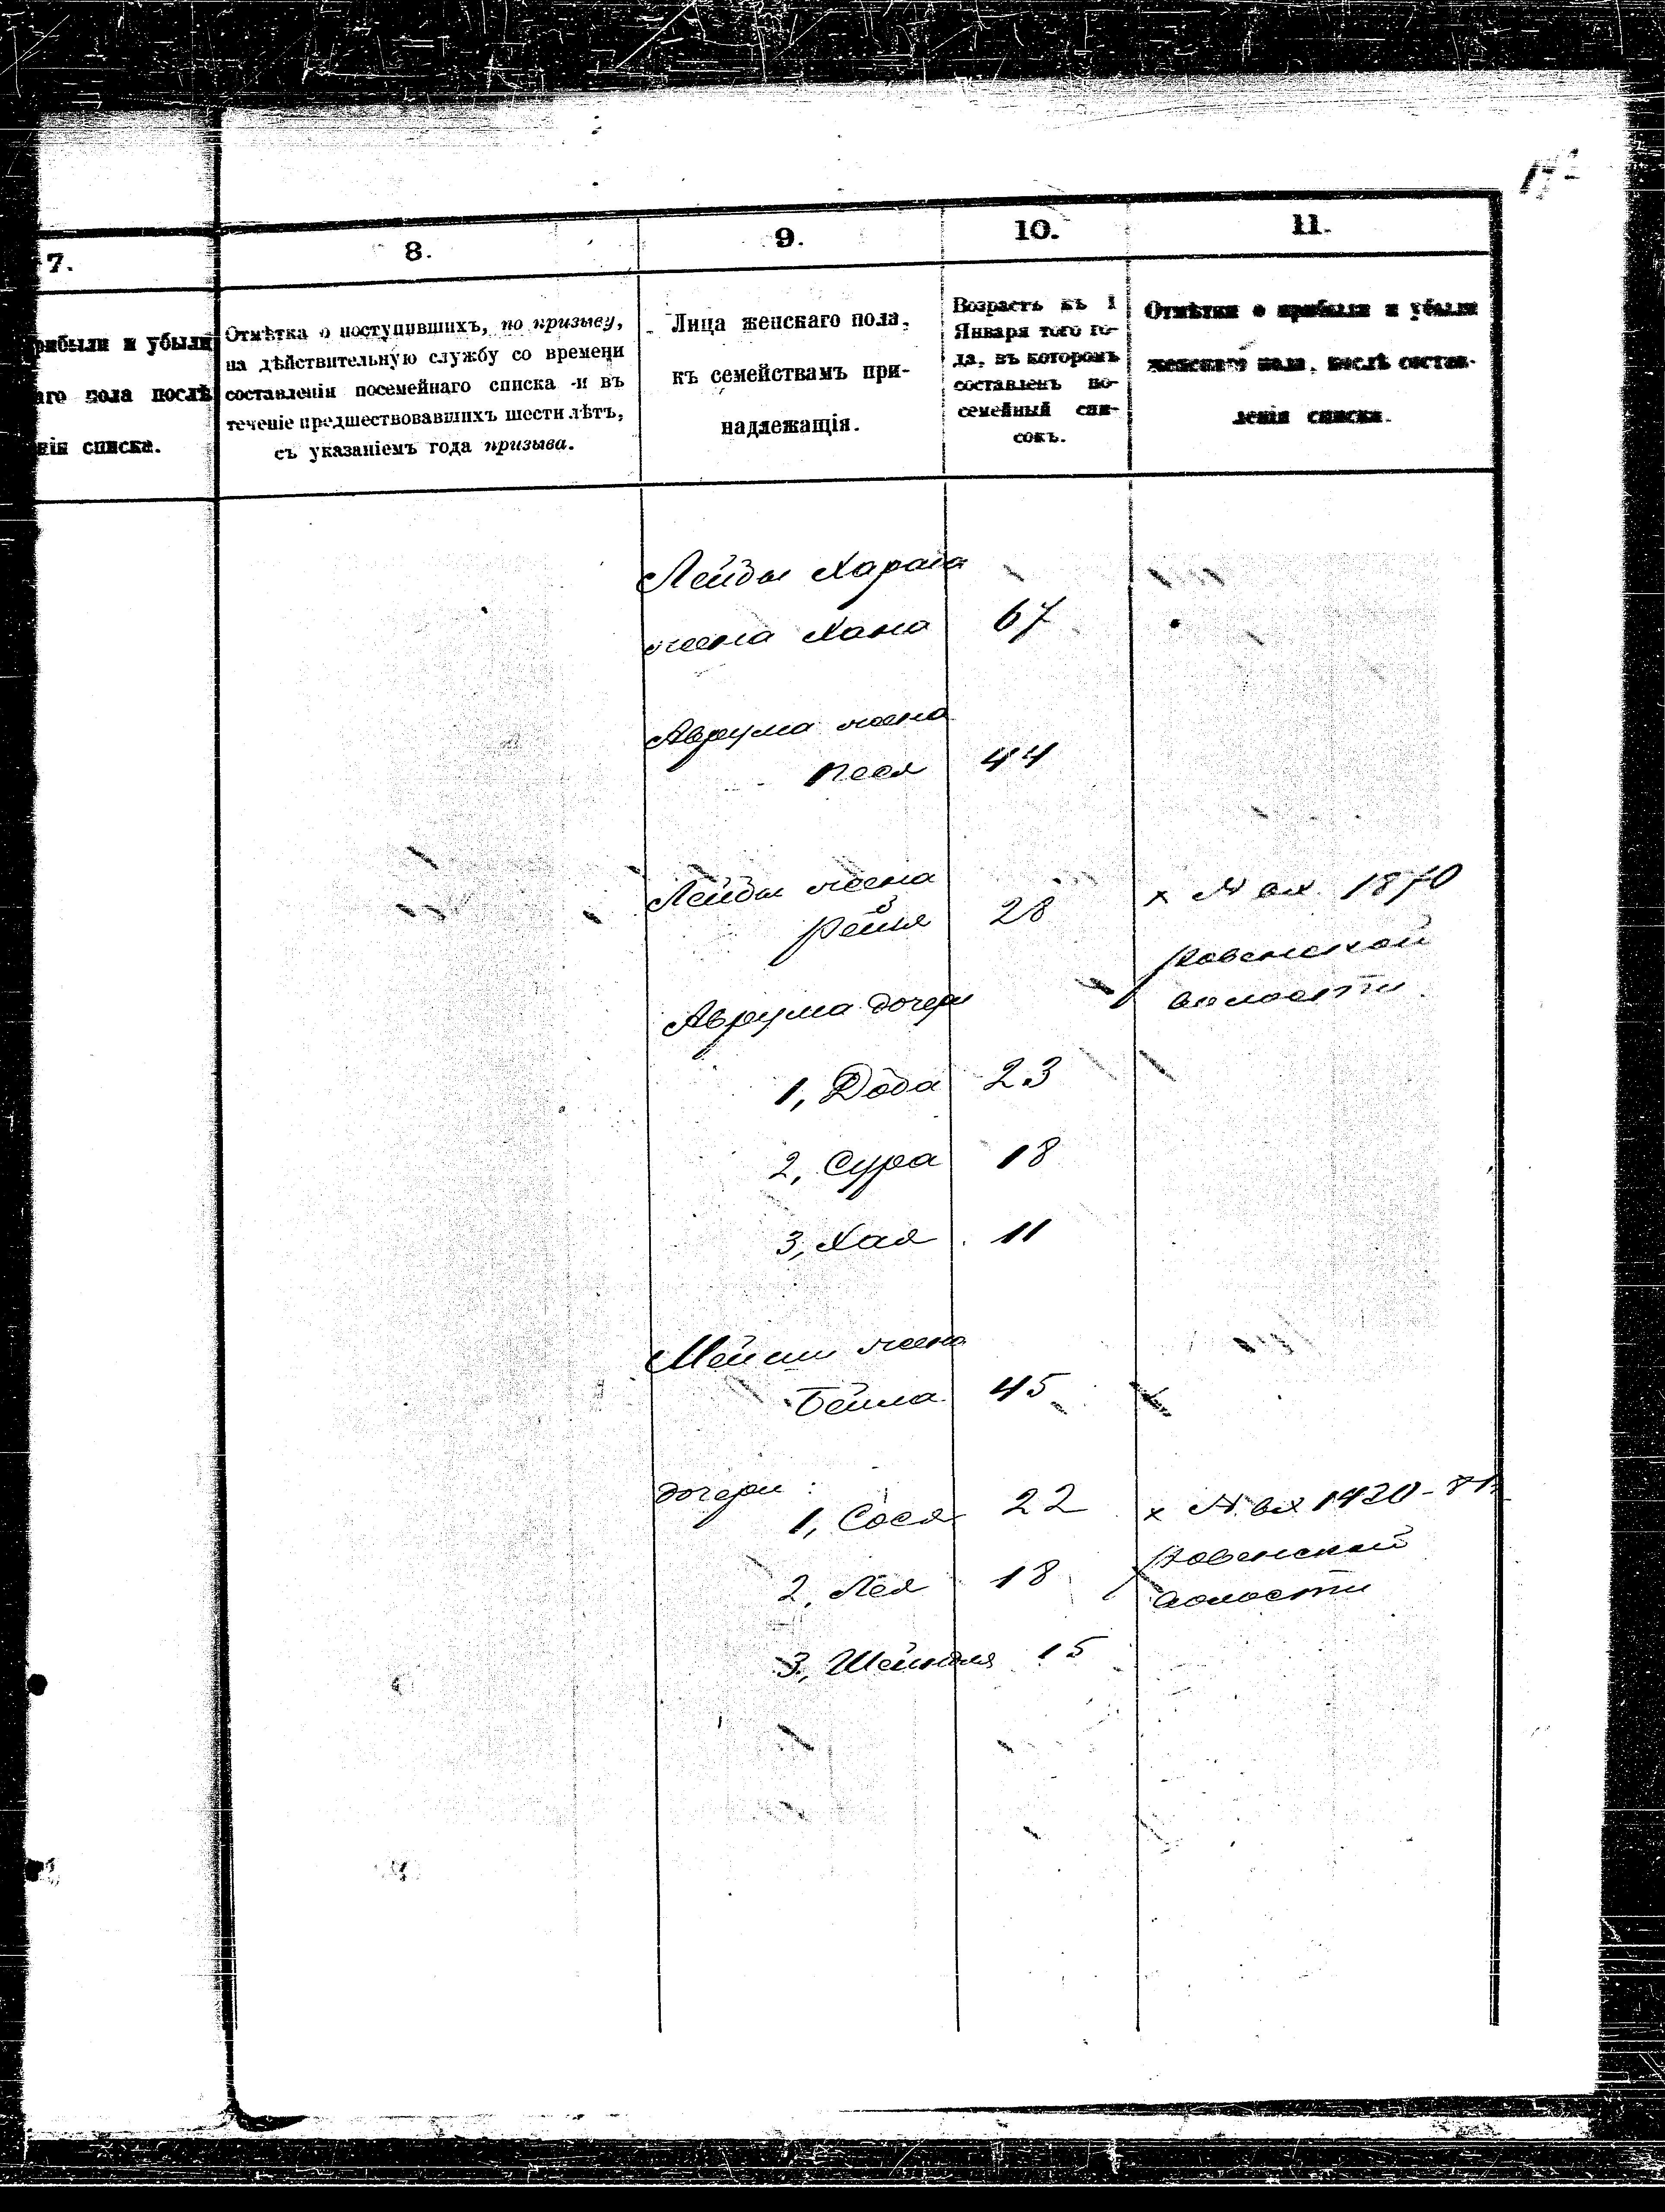 7.
8.
9.
10.
11.
рибыли и убыли
аго пола послѣ
нія списка.
Отмѣтка о поступившихъ, по призыву,
на дѣйствительную службу со времени
составленія посемейнаго списка и въ
теченіе предшествовавшихъ шести лѣтъ,
съ указаніемъ года призыва.
Лица женскаго пола,
къ семействамъ при-
надлежащія.
Возрастъ къ 1
Января того го-
да, въ которомъ
составленъ по-
семейный спи-
сокъ.
Отмѣтки о прибыли и убыли
женскаго пола, послѣ состав-
ленія списка.
Лейбы
жена Хана 67
Аврума жена
Песя 44
Лейбы жена
28 х № вх. 1870
Ровенской
волости
Аврума дочери
1, Доба 23
2, Сура 18
3, Хая 11
жена
Бейла 45
дочери:
1, Сося 22 х № вх 1920-81
Ровенской
2, Лея 18
волости
3, Шейндля 15